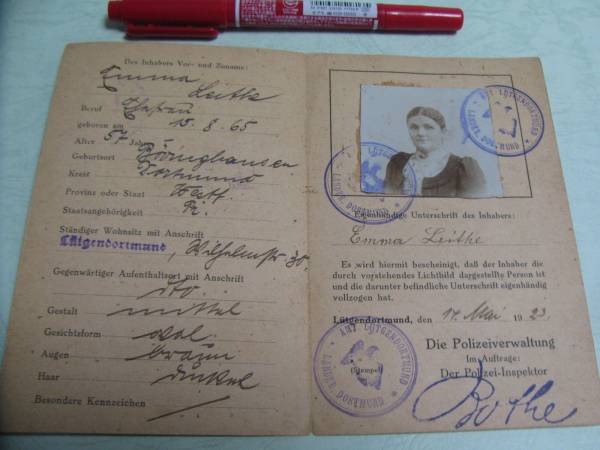 Des Inhabers Vor- und Zuname:
Emma
Leithe
Beruf Ehefrau
geboren am 15.8.65
Alter 57 Jahre
Geburtsort Bövinghausen
Kreis Dortmund
Provinz oder Staat Westf.
Staatsangehörigkeit Pr.
Ständiger Wohnsitz mit Anschrift
Lütgendortmund, Wilhelmstr. 30
Gegenwärtiger Aufenthaltsort mit Anschrift
dto
Gestalt mittel
Gesichtsform oval
Augen braun
Haar dunkel
Besondere Kennzeichen /
AMT LÜTGENDORTMUND
LANDKR. DORTMUND
AMT LÜTGENDORTMUND
LANDKR. DORTMUND
Eigenhändige Unterschrift des Inhabers:
Emma Leithe
Es wird hiermit bescheinigt, daß der Inhaber die
durch vorstehendes Lichtbild dargestellte Person ist
und die darunter befindliche Unterschrift eigenhändig
vollzogen hat.
Lütgendortmund, den 14. Mai 1923.
AMT LÜTGENDORTMUND
LANDKR. DORTMUND
(Stempel)
Die Polizeiverwaltung
Im Auftrage:
Der Polizei-Inspektor
Bothe